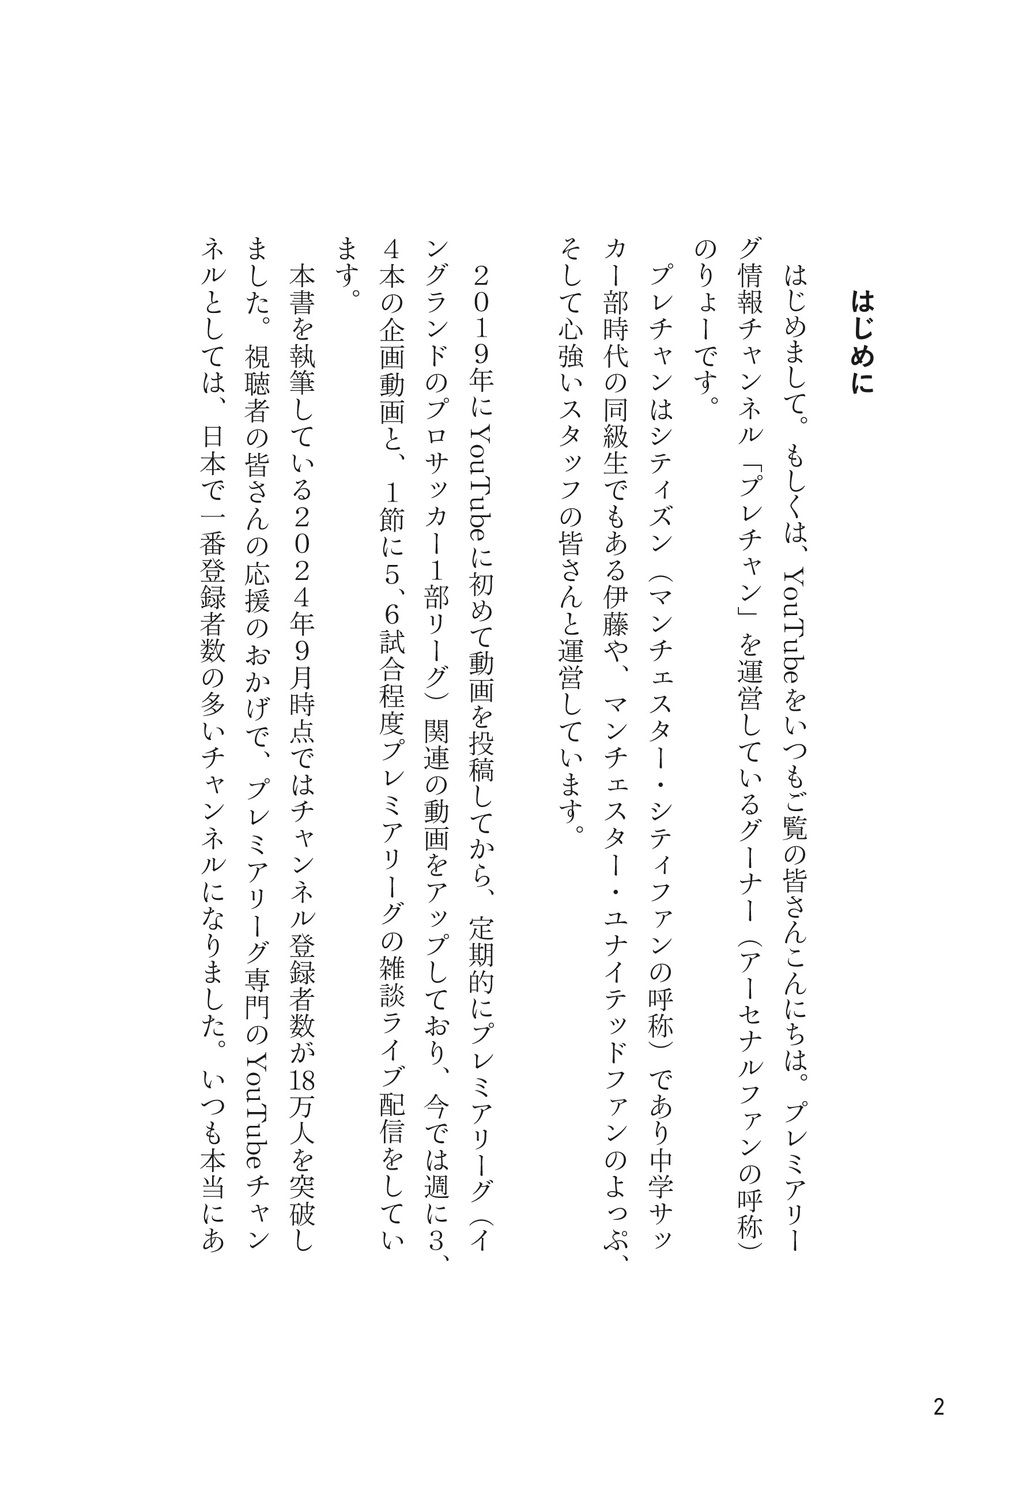 はじめに
はじめまして。もしくは、YouTubeをいつもご覧の皆さんこんにちは。プレミアリー
グ情報チャンネル「プレチャン」を運営しているグーナー（アーセナルファンの呼称）
のりょーです。
プレチャンはシティズン（マンチェスター・シティファンの呼称）であり中学サッ
カー部時代の同級生でもある伊藤や、マンチェスター・ユナイテッドファンのよっぷ、
そして心強いスタッフの皆さんと運営しています。
２０１９年にYouTubeに初めて動画を投稿してから、定期的にプレミアリーグ（イ
ングランドのプロサッカー１部リーグ）関連の動画をアップしており、今では週に３、
４本の企画動画と、１節に５、６試合程度プレミアリーグの雑談ライブ配信をしてい
ます。
本書を執筆している２０２４年９月時点ではチャンネル登録者数が18万人を突破し
ました。視聴者の皆さんの応援のおかげで、プレミアリーグ専門のYouTubeチャン
ネルとしては、日本で一番登録者数の多いチャンネルになりました。いつも本当にあ
2